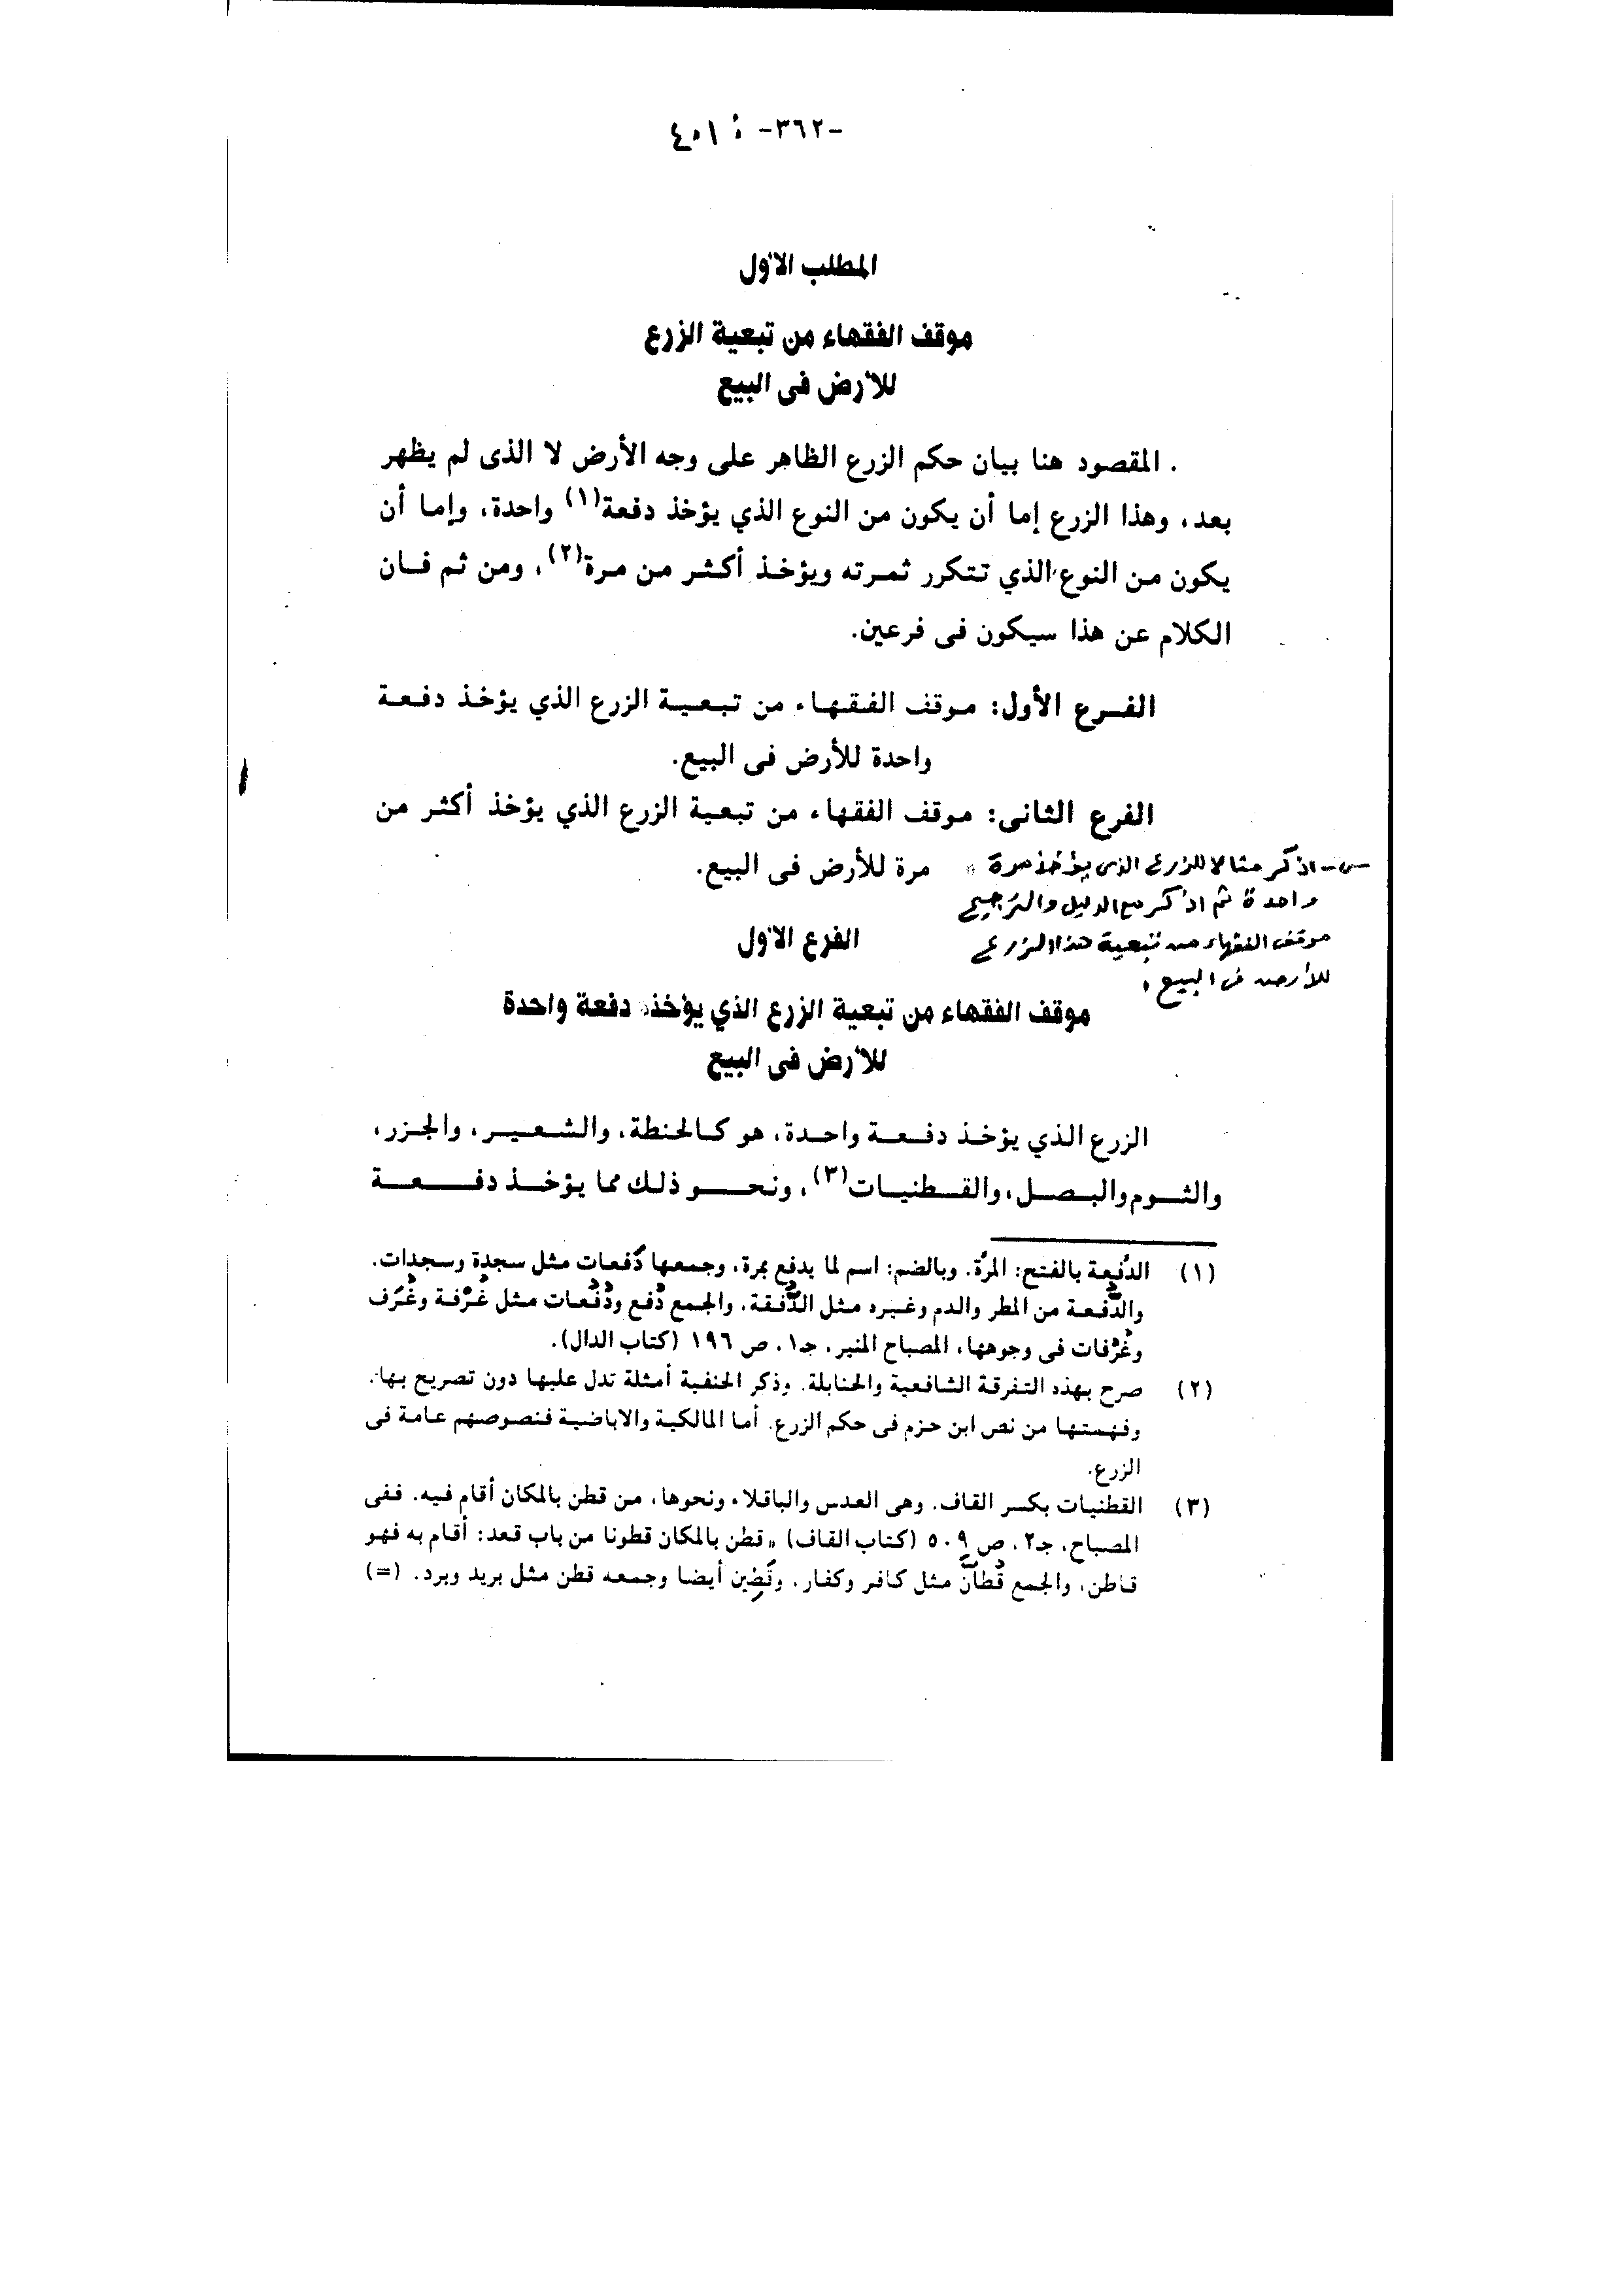 -٣٦٢- : ٤٠١
المطلب الأول
موقف الفقهاء من تبعية الزرع
للأرض فى البيع
المقصود هنا بيان حكم الزرع الظاهر على وجه الأرض لا الذى لم يظهر
بعد، وهذا الزرع إما أن يكون من النوع الذي يؤخذ دفعة(١) واحدة، وإما أن
يكون من النوع الذي تتكرر ثمرته ويؤخذ أكثر من مرة(٢)، ومن ثم فان
الكلام عن هذا سيكون فى فرعين.
الفرع الأول: موقف الفقهاء من تبعية الزرع الذي يؤخذ دفعة
واحدة للأرض فى البيع.
الفرع الثانى: موقف الفقهاء من تبعية الزرع الذي يؤخذ أكثر من
مرة للأرض فى البيع.
س - اذكر مثالا للزرع الذى يؤخذ مرة
واحدة ثم اذكر مع الدليل والترجيح
موقف الفقهاء من تبعية هذا الزرع
للأرض فى البيع
الفرع الأول
موقف الفقهاء من تبعية الزرع الذي يؤخذ دفعة واحدة
للأرض فى البيع
الزرع الذي يؤخذ دفعة واحدة، هو كالحنطة، والشعير، والجزر،
والثوم والبصل، والقطنيات(٣)، ونحو ذلك مما يؤخذ دفعة
(١) الدَّفعة بالفتح: المرَّة. وبالضم: اسم لما يدفع بمرة، وجمعها دَفعات مثل سجدة وسجدات.
والدُّفعة من المطر والدم وغيره مثل الدُّفقة، والجمع دُفع ودُفُعات مثل غُرْفة وغُرَف
وغُرُفات فى وجوهها، المصباح المنير، جـ١، ص ١٩٦ (كتاب الدال).
(٢) صرح بهذه التفرقة الشافعية والحنابلة. وذكر الحنفية أمثلة تدل عليها دون تصريح بها.
وفهمتها من نص ابن حزم فى حكم الزرع. أما المالكية والاباضية فنصوصهم عامة فى
الزرع.
(٣) القطنيات بكسر القاف. وهى العدس والباقلاء ونحوها، من قطن بالمكان أقام فيه. ففى
المصباح، جـ٢، ص ٥٠٩ (كتاب القاف) «قطن بالمكان قطونا من باب قعد: أقام به فهو
قاطن، والجمع قُطَّانٌ مثل كافر وكفار. وقَطِين أيضا وجمعه قطن مثل بريد وبرد. (=)